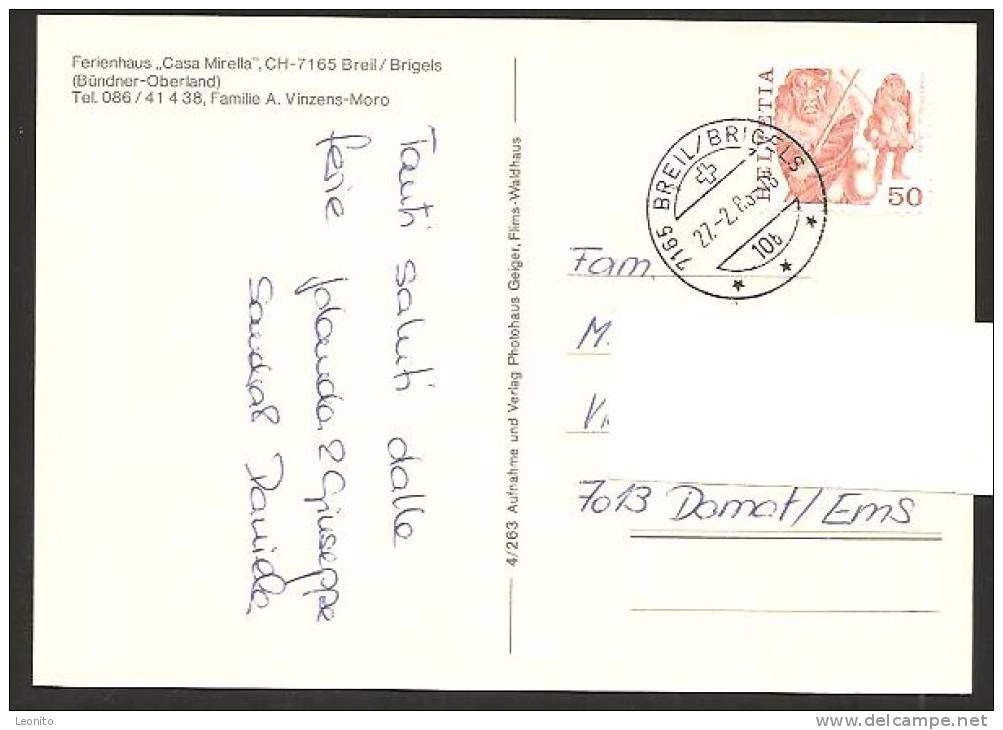 Ferienhaus „Casa Mirella", CH-7165 Breil/Brigels
(Bündner-Oberland)
Tel. 086/41 4 38, Familie A. Vinzens-Moro
Tanti saluti dalle
ferie Jolanda & Giuseppe
Sandra & Daniela
4/263 Aufnahme und Verlag Photohaus Geiger, Flims-Waldhaus
HELVETIA
50
7165 BREIL/BRIGELS
27.-2.8
10t
Fam.
M.
7013 Domat/Ems
Leonito
www.delcampe.net